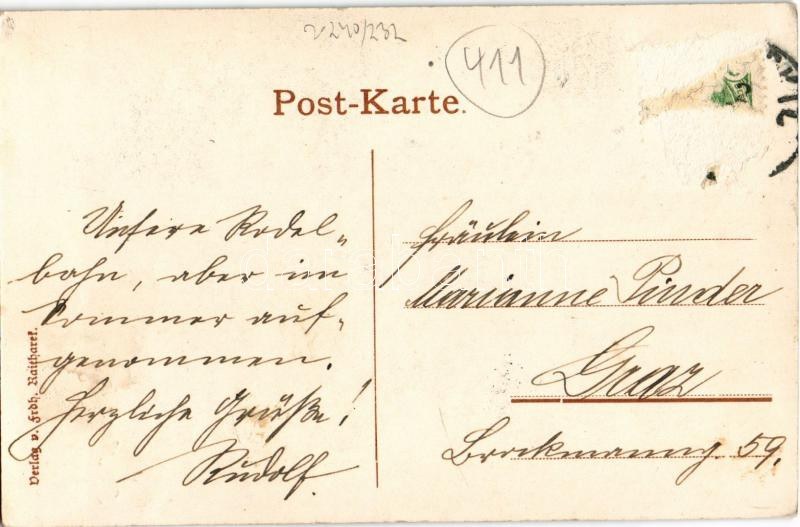 V 240/232
411
Post-Karte.
Unsere Rodel-
bahn, aber im
Sommer auf-
genommen.
Herzliche Grüße!
Rudolf.
Fräulein
Marianne Pinder
Graz
Brockmanng. 59.
Verlag v. Frdh. Raitharek.